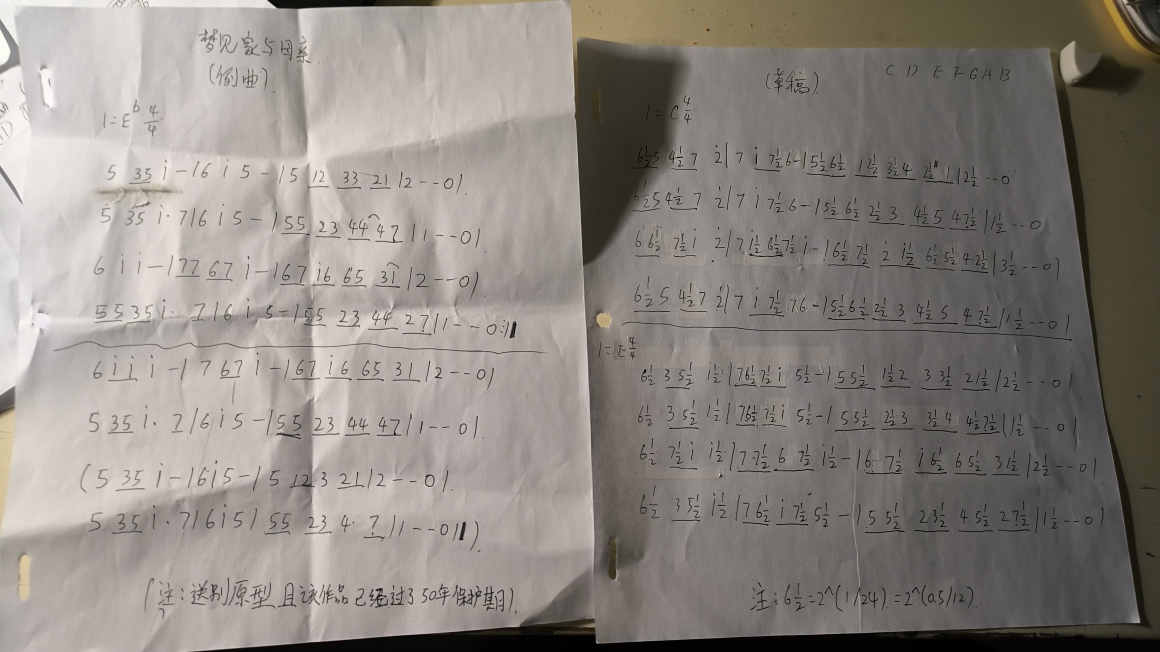 梦见家与母亲.
(例曲).
1=E♭ 4/4
5 35 i - | 6 i 5 - | 5 12 33 21 | 2 - - 0 |.
5 35 i · 7 | 6 i 5 - | 55 23 44 47 | 1 - - 0 |.
6 i i - | 77 67 i - | 67 i6 65 31 | 2 - - 0 |.
55 35 i · 7 | 6 i 5 - | 55 23 44 27 | 1 - - 0 :||
6 i i i - | 7 67 i - | 67 i6 65 31 | 2 - - 0 |
5 35 i · 7 | 6 i 5 - | 55 23 44 47 | 1 - - 0 |.
(5 35 i - | 6 i 5 - | 5 12 3 21 | 2 - - 0 |.
5 35 i · 7 | 6 i 5 | 55 23 4 · 7 | 1 - - 0 ||).
(注:送别原型且该作品已经过了50年保护期).
C D E F G A B
(草稿).
1=C 4/4
6½5 4½7 2̇ | 7 i 7½ 6 - | 5½6½ 1½2 3½4 2½# 1 | 2½ - - 0
6½5 4½7 2̇ | 7 i 7½ 6 - | 5½ 6½ 2½ 3 4½ 5 4 7½ | 1½ - - 0
6 6½ 7½ i 2̇ | 7 i½ 6½ 7½ i - | 6½ 7½ 2̇ i½ 6½ 5½ 4 · 2½ | 3½ - - 0 |
6½ 5 4½ 7 2̇ | 7 i 7½ 7 6 - | 5½ 6½ 2½ 3 4½ 5 4 7½ | 1½ - - 0 |
1=E 4/4
6½ 3 5½ i½ | 7 6½ 7½ i 5½ - | 5 5½ 1½ 2 3 3½ 2 1½ | 2½ - - 0 |
6½ 3 5½ i½ | 7 6½ 7½ i 5½ - | 5 5½ 2½ 3 3½ 4 4½ 7½ | 1½ - - 0 |
6½ 7½ i i½ | 7 7½ 6 7½ i½ - | 6 7½ i 6½ 6 5½ 3 1½ | 2½ - - 0 |
6½ 3 5½ i½ | 7 6½ i 7½ 5½ - | 5 5½ 2 3½ 4 5½ 2 7½ | 1½ - - 0 |
注:6½=2^(1/24)=2^(0.5/12)